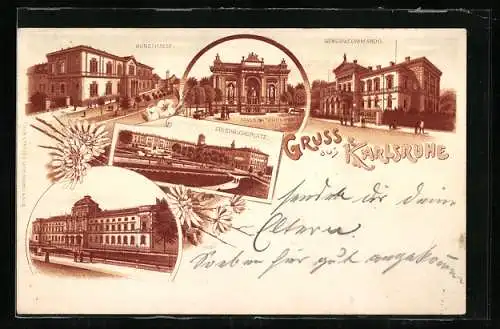 KUNSTHALLE.
GENERALCOMMANDO.
FRIEDRICHSPLATZ.
Gruss aus Karlsruhe
sendet dir deine
Eltern.
Soeben hier gut angekommen